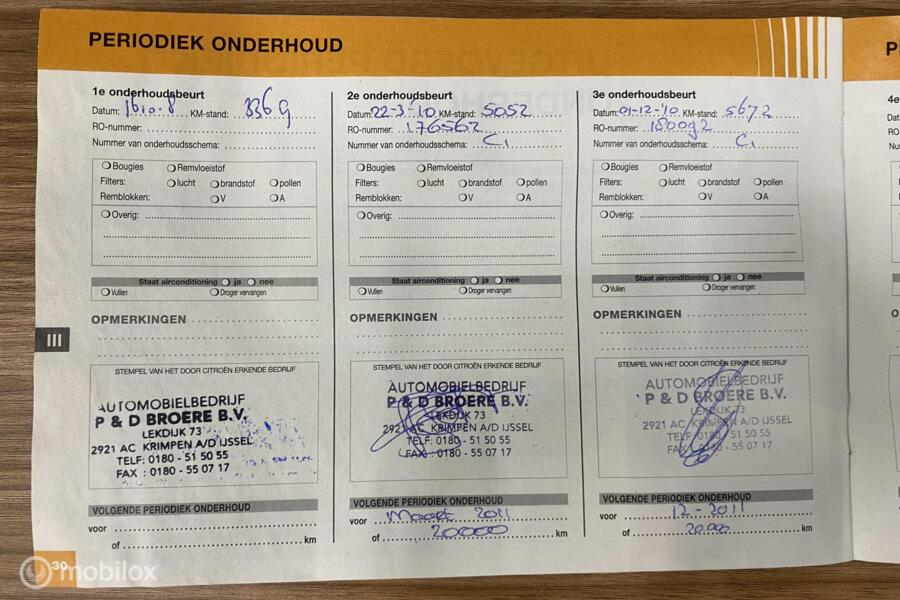 PERIODIEK ONDERHOUD
1e onderhoudsbeurt
Datum: 16.10.8 KM-stand: 336 G
RO-nummer:
Nummer van onderhoudsschema:
Bougies Remvloeistof
Filters: lucht brandstof pollen
Remblokken: V A
Overig:
Staat airconditioning ja nee
Vullen Droger vervangen
OPMERKINGEN
STEMPEL VAN HET DOOR CITROËN ERKENDE BEDRIJF
AUTOMOBIELBEDRIJF
P & D BROERE B.V.
LEKDIJK 73
2921 AC KRIMPEN A/D IJSSEL
TELF: 0180 - 51 50 55
FAX : 0180 - 55 07 17
VOLGENDE PERIODIEK ONDERHOUD
voor
of km
2e onderhoudsbeurt
Datum: 22-3-'10 KM-stand: 5052
RO-nummer: 176562
Nummer van onderhoudsschema: C1
Bougies Remvloeistof
Filters: lucht brandstof pollen
Remblokken: V A
Overig:
Staat airconditioning ja nee
Vullen Droger vervangen
OPMERKINGEN
STEMPEL VAN HET DOOR CITROËN ERKENDE BEDRIJF
AUTOMOBIELBEDRIJF
P & D BROERE B.V.
LEKDIJK 73
2921 AC KRIMPEN A/D IJSSEL
TELF: 0180 - 51 50 55
FAX : 0180 - 55 07 17
VOLGENDE PERIODIEK ONDERHOUD
voor Maart 2011
of 20000 km
3e onderhoudsbeurt
Datum: 01-12-'10 KM-stand: 5672
RO-nummer: 180092
Nummer van onderhoudsschema: C1
Bougies Remvloeistof
Filters: lucht brandstof pollen
Remblokken: V A
Overig:
Staat airconditioning ja nee
Vullen Droger vervangen
OPMERKINGEN
STEMPEL VAN HET DOOR CITROËN ERKENDE BEDRIJF
AUTOMOBIELBEDRIJF
P & D BROERE B.V.
LEKDIJK 73
2921 AC KRIMPEN A/D IJSSEL
TELF: 0180 - 51 50 55
FAX : 0180 - 55 07 17
VOLGENDE PERIODIEK ONDERHOUD
voor 12-2011
of 20.000 km
4e
III
30
mobilox